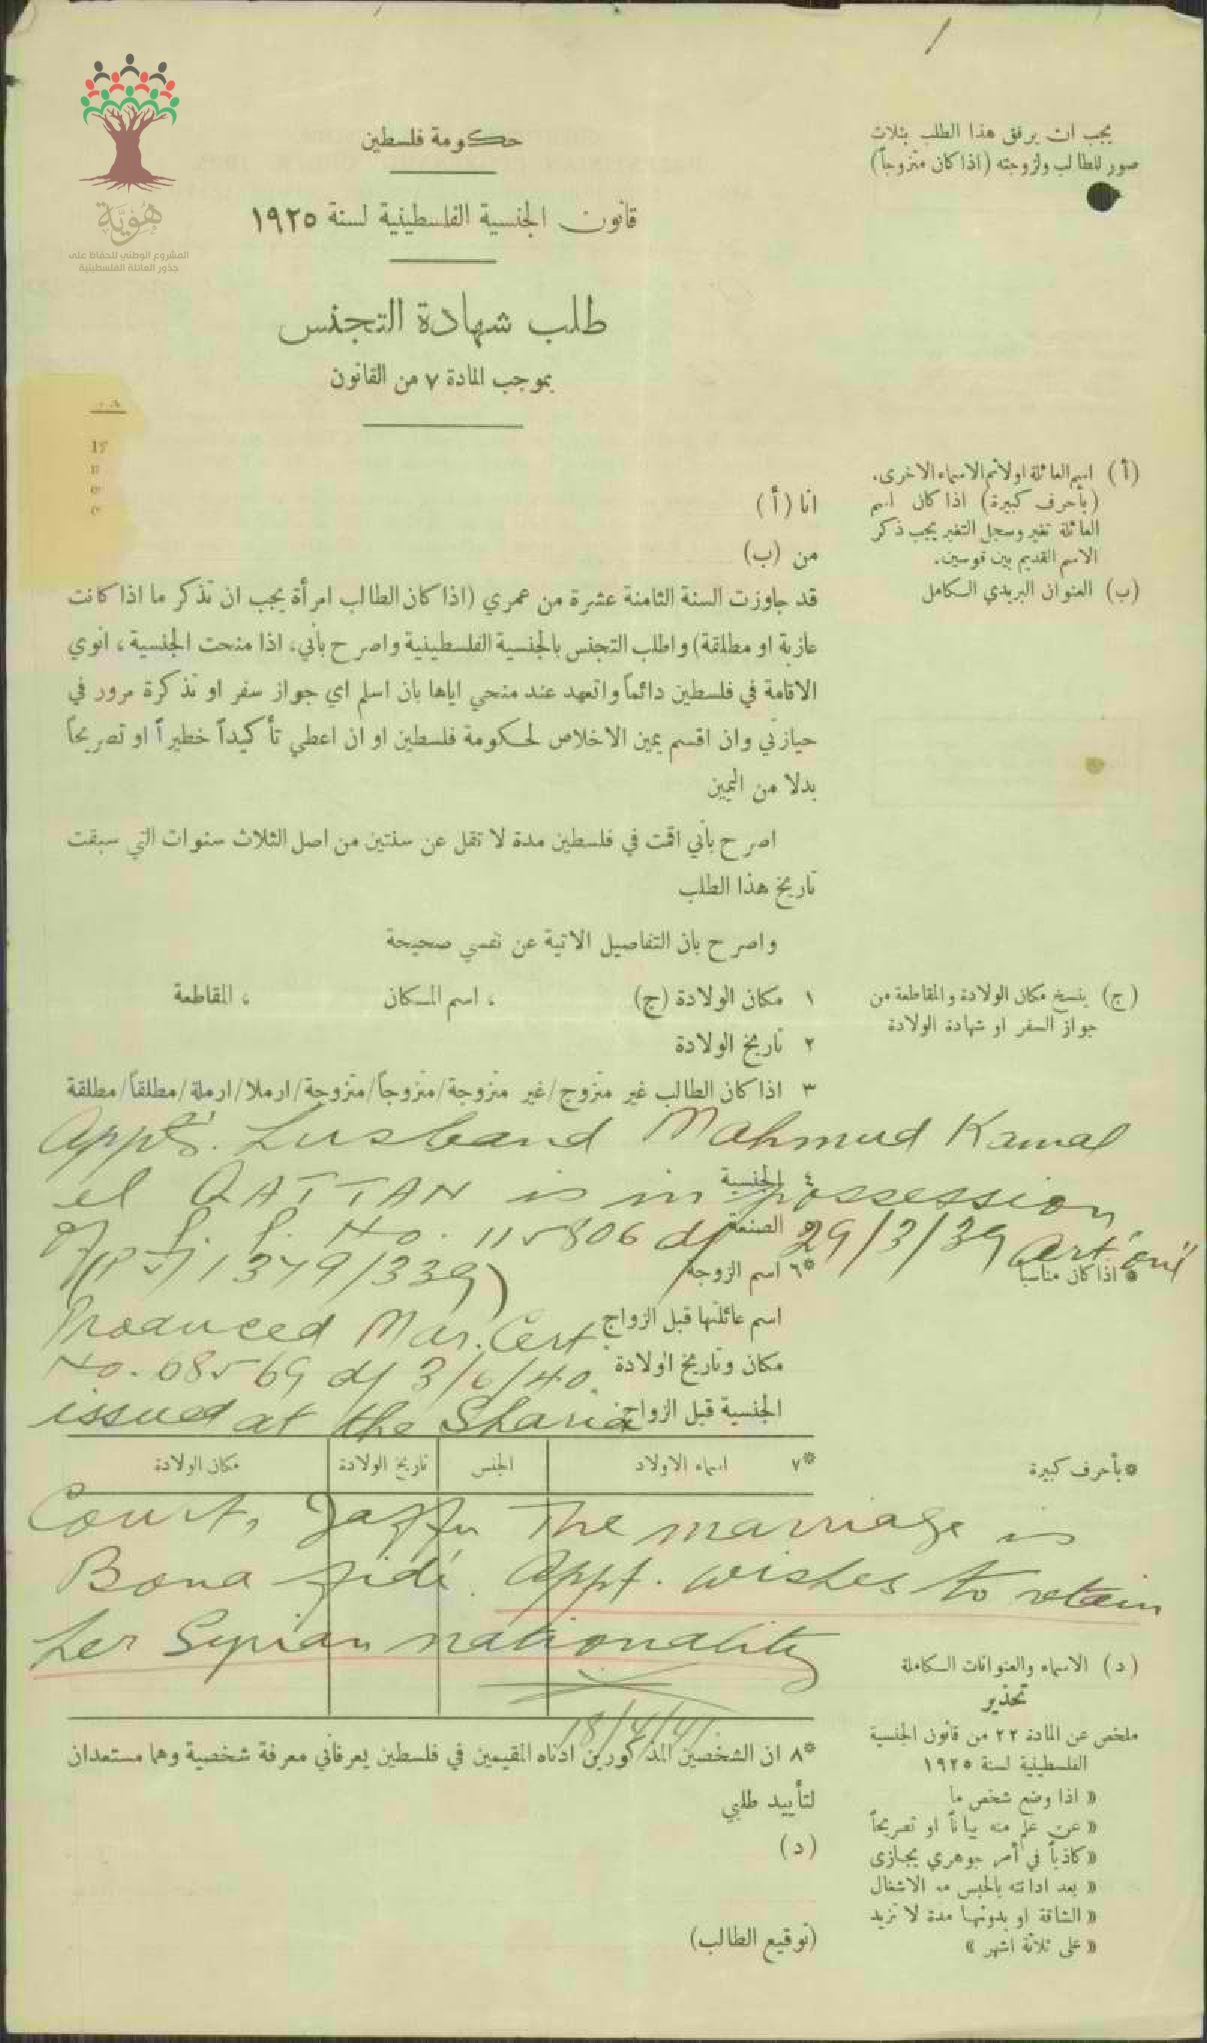 1
هُوِيَّة
المشروع الوطني للحفاظ على
جذور العائلة الفلسطينية
يجب ان يرفق هذا الطلب بثلاث
صور للطالب ولزوجته (اذا كان متزوجاً)
حكومة فلسطين
قانون الجنسية الفلسطينية لسنة ١٩٢٥
طلب شهادة التجنس
بموجب المادة ٧ من القانون
(أ) اسم العائلة اولا ثم الاسماء الاخرى.
(بأحرف كبيرة) اذا كان اسم
العائلة تغير وسجل التغير يجب ذكر
الاسم القديم بين قوسين.
(ب) العنوان البريدي الكامل
انا (أ)
من (ب)
قد جاوزت السنة الثامنة عشرة من عمري (اذا كان الطالب امرأة يجب ان تذكر ما اذا كانت
عازبة او مطلقة) واطلب التجنس بالجنسية الفلسطينية واصرح بأني، اذا منحت الجنسية، انوي
الاقامة في فلسطين دائماً واتعهد عند منحي اياها بان اسلم اي جواز سفر او تذكرة مرور في
حيازتي وان اقسم يمين الاخلاص لحكومة فلسطين او ان اعطي تأكيداً خطيراً او تصريحاً
بدلا من اليمين
اصرح بأني اقمت في فلسطين مدة لا تقل عن سنتين من اصل الثلاث سنوات التي سبقت
تاريخ هذا الطلب
واصرح بان التفاصيل الاتية عن نفسي صحيحة
(ج) ينسخ مكان الولادة والمقاطعة من
جواز السفر او شهادة الولادة
١ مكان الولادة (ج) ، اسم المكان ، المقاطعة
٢ تاريخ الولادة
٣ اذا كان الطالب غير متزوج/غير متزوجة/متزوجاً/متزوجة/ارملا/ارملة/مطلقاً/مطلقة
Appt's. husband Mahmud Kamal
٤ الجنسية
el QATTAN is in possession
الصنعة
of P. P. No. 115806 d/ 29/3/39 Art.
*٦ اسم الزوجة
* اذا كان مناسباً
1349/339)
اسم عائلتها قبل الزواج
Produced Mar. Cert.
مكان وتاريخ الولادة
No. 68569 d/ 3/6/40.
الجنسية قبل الزواج
issued at the Sharia
*٧ اسماء الاولاد الجنس تاريخ الولادة مكان الولادة
*بأحرف كبيرة
Court, Jaffa. The marriage is
Bona fide. Appt. wishes to retain
her Syrian nationality
18/4/41.
(د) الاسماء والعنوانات الكاملة
تحذير
ملخص عن المادة ٢٢ من قانون الجنسية
الفلسطينية لسنة ١٩٢٥
« اذا وضع شخص ما
« عن علم منه بياناً او تصريحاً
« كاذباً في أمر جوهري يجازى
« بعد ادانته بالحبس مع الاشغال
« الشاقة او بدونها مدة لا تزيد
« على ثلاثة اشهر »
*٨ ان الشخصين المذكورين ادناه المقيمين في فلسطين يعرفاني معرفة شخصية وهما مستعدان
لتأييد طلبي
(د)
(توقيع الطالب)